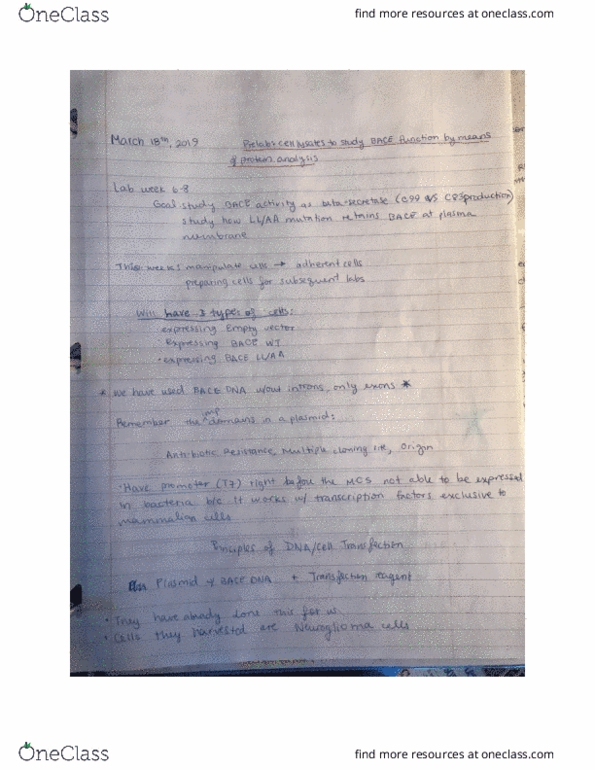 OneClass
find more resources at oneclass.com
March 18th, 2019 Prelab: cell lysates to study BACE function by means
of protein analysis
Lab week 6-8
Goal study BACE activity as beta-secretase (C99 VS C83 production)
study how LL/AA mutation retains BACE at plasma
membrane
This week: manipulate cells → adherent cells
preparing cells for subsequent labs
Will have 3 types of cells:
expressing Empty vector
· Expressing BACE WT
· expressing BACE LL/AA
* we have used BACE DNA w/out introns, only exons *
Remember the imp domains in a plasmid:
Antibiotic Resistance, Multiple cloning site, Origin
· Have promoter (T7) right before the MCS not able to be expressed
in bacteria b/c it works w/ transcription factors exclusive to
mammalian cells
Principles of DNA/Cell Transfection
Plasmid BACE DNA + Transfection reagent
· They have already done this for us
· Cells they harvested are Neuroglioma cells
OneClass
find more resources at oneclass.com